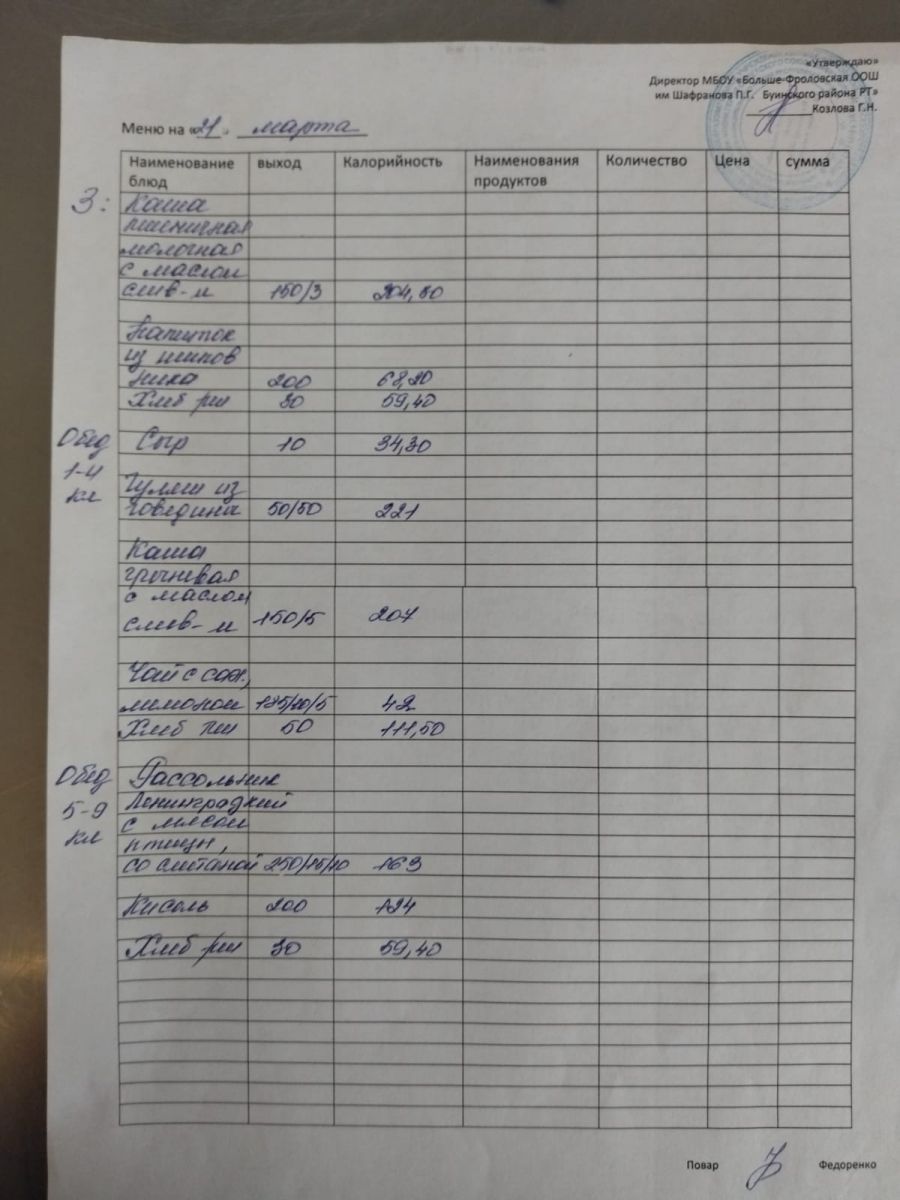 «Утверждаю»
Директор МБОУ «Больше-Фроловская ООШ
им Шафранова П.Г. Буинского района РТ»
Козлова Г.Н.
Меню на «21» марта
Наименование блюд выход Калорийность Наименования продуктов Количество Цена сумма
З: Каша
пшеничная
молочная
с маслом
слив-м 150/3 204,30
Напиток
из шипов
ника 200 68,20
Хлеб рж 30 59,40
Обед Сыр 10 34,30
1-4
кл Гуляш из
говядина 50/50 221
Каша
гречневая
с маслом
слив-м 150/5 207
Чай с сах,
лимоном 185/10/5 42
Хлеб пш 50 111,50
Обед Рассольник
5-9 Ленинградкий
с мясом
кл птицы,
со сметаной 250/15/10 163
Кисель 200 124
Хлеб рж 30 59,40
Повар Федоренко